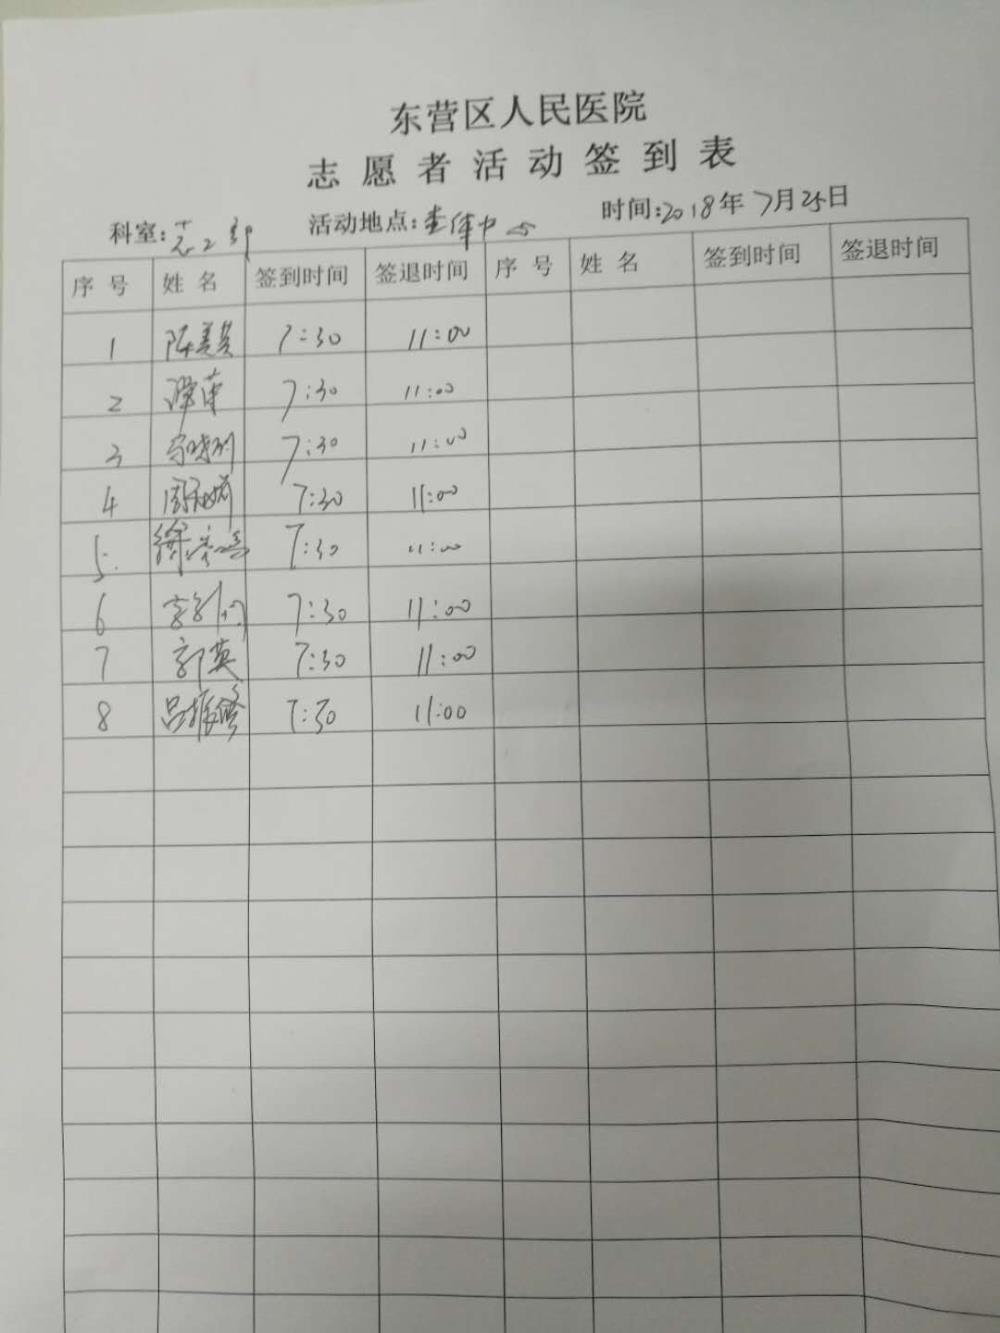 东营区人民医院
志愿者活动签到表
科室: 活动地点: 时间:2018年7月25日
序号 姓名 签到时间 签退时间 序号 姓名 签到时间 签退时间
1 陈美 7:30 11:00
2 7:30 11:00
3 7:30 11:00
4 周 7:30 11:00
5. 徐 7:30 11:00
6 7:30 11:00
7 郭英 7:30 11:00
8 吕振 7:30 11:00